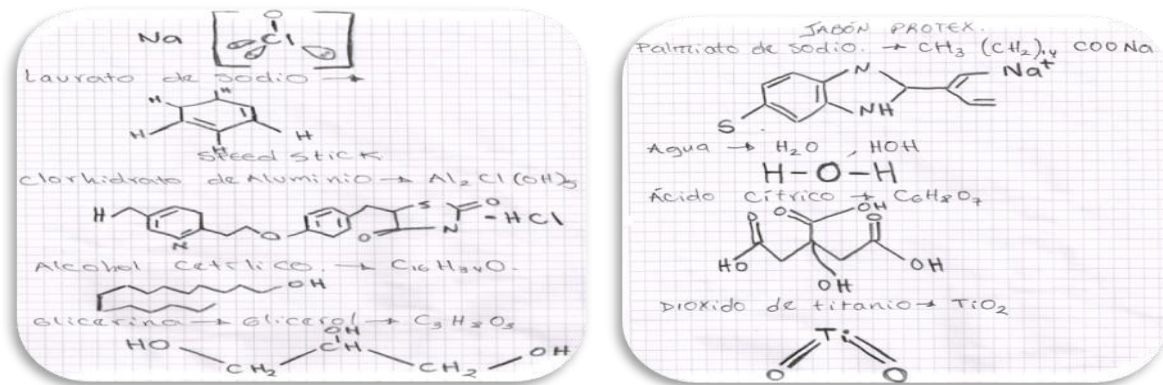 O
Na [Cl]
Laurato de sodio →
H H
H H
H
Speed stick
Clorhidrato de Aluminio → Al2Cl(OH)5
H N O S O O N - HCl
Alcohol Cetílico. → C16H34O.
OH
Glicerina → Glicerol → C3H8O3
OH
HO CH2 CH CH2 OH
JABÓN PROTEX.
Palmiato de sodio. → CH3 (CH2)14 COONa
N Na+
NH
S
Agua → H2O , HOH
H-O-H
Ácido Cítrico → C6H8O7
O OH
O O
HO OH
OH
DIOXido de titanio → TiO2
Ti
O O